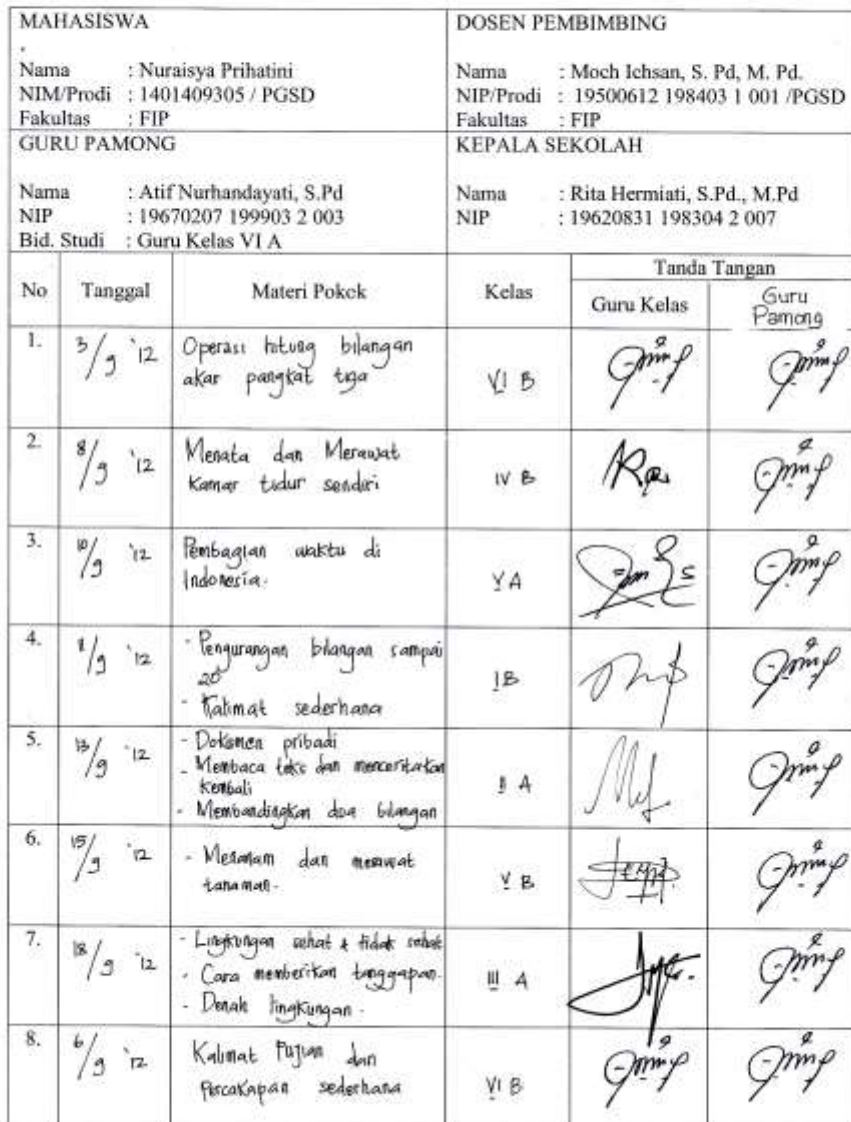 MAHASISWA
Nama : Nuraisya Prihatini
NIM/Prodi : 1401409305 / PGSD
Fakultas : FIP
DOSEN PEMBIMBING
Nama : Moch Ichsan, S. Pd, M. Pd.
NIP/Prodi : 19500612 198403 1 001 /PGSD
Fakultas : FIP
GURU PAMONG
Nama : Atif Nurhandayati, S.Pd
NIP : 19670207 199903 2 003
Bid. Studi : Guru Kelas VI A
KEPALA SEKOLAH
Nama : Rita Hermiati, S.Pd., M.Pd
NIP : 19620831 198304 2 007
No Tanggal Materi Pokok Kelas Tanda Tangan
Guru Kelas Guru Pamong
1. 3/9 '12 Operasi hitung bilangan
akar pangkat tiga VI B
2. 8/9 '12 Menata dan Merawat
Kamar tidur sendiri IV B
3. 10/9 '12 Pembagian waktu di
Indonesia. V A
4. /9 '12 - Pengurangan bilangan sampai
20
- Kalimat sederhana I B
5. 13/9 '12 - Dokumen pribadi
- Membaca teks dan menceritakan
kembali
- Membandingkan dua bilangan II A
6. 15/9 '12 - Menanam dan merawat
tanaman. V B
7. 18/9 '12 - Lingkungan sehat & tidak sehat
- Cara memberikan tanggapan.
- Denah lingkungan. III A
8. 6/9 '12 Kalimat Pujian dan
Percakapan sederhana VI B